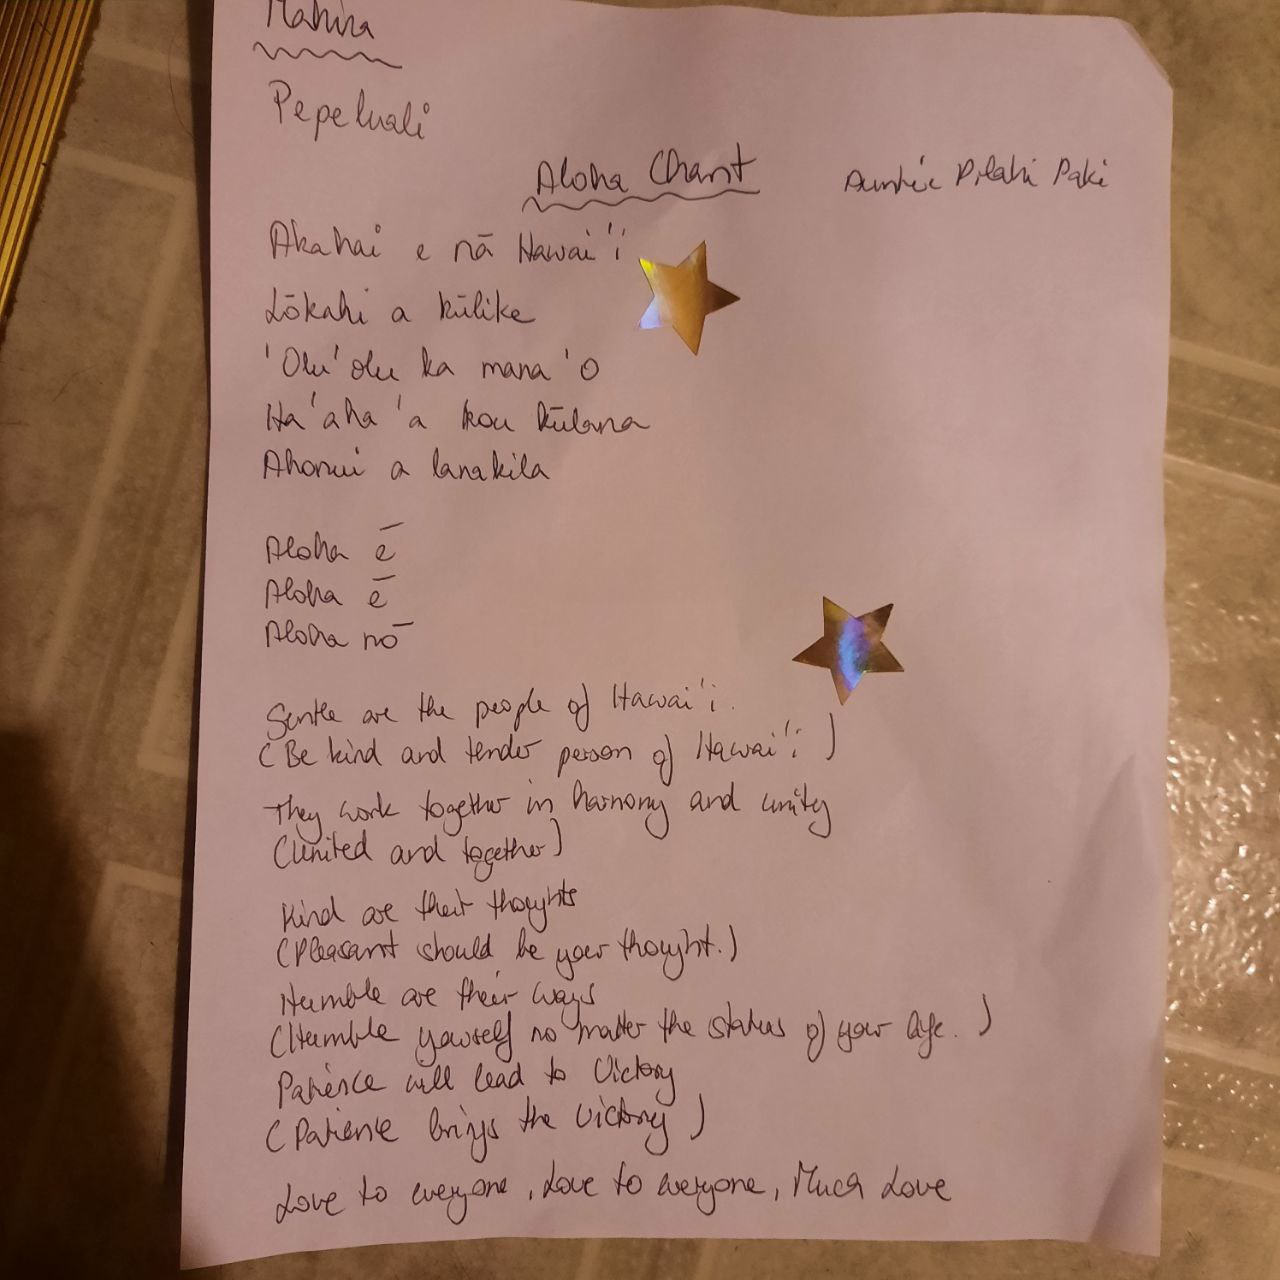 Mahina
Pepeluali
Aloha Chant
Auntie Pilahi Paki
Akahai e nā Hawai'i
Lōkahi a kūlike
'Olu'olu ka mana'o
Ha'aha'a kou kūlana
Ahonui a lanakila
Aloha ē
Aloha ē
Aloha nō
Gentle are the people of Hawai'i.
(Be kind and tender person of Hawai'i)
They work together in harmony and unity
(United and together)
Kind are their thoughts
(Pleasant should be your thought.)
Humble are their ways
(Humble yourself no matter the status of your life.)
Patience will lead to Victory
(Patience brings the Victory)
Love to everyone, Love to everyone, Much Love